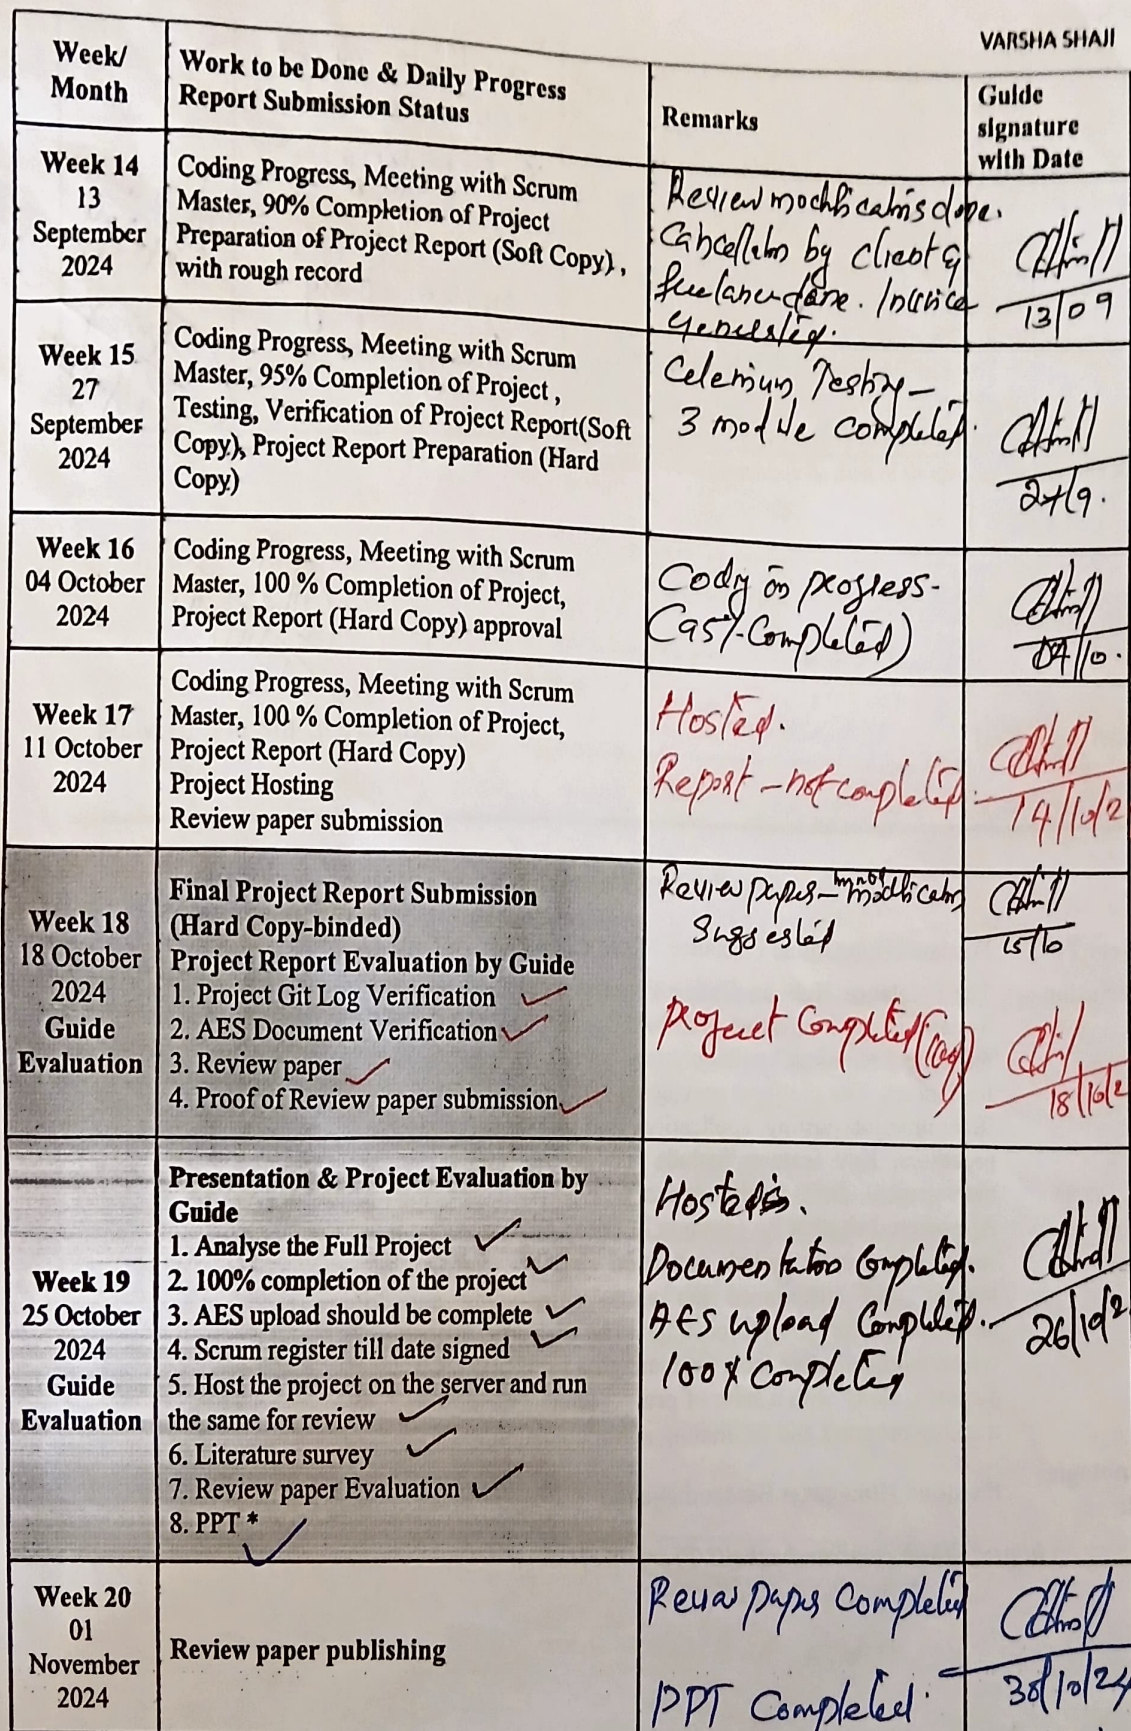 VARSHA SHAJI
Week/
Month
Work to be Done & Daily Progress
Report Submission Status
Remarks
Guide
signature
with Date
Week 14
13
September
2024
Coding Progress, Meeting with Scrum
Master, 90% Completion of Project
Preparation of Project Report (Soft Copy) ,
with rough record
Review modifications done.
Cancellation by client &
freelancer done. Invoice
generated.
13/09
Week 15
27
September
2024
Coding Progress, Meeting with Scrum
Master, 95% Completion of Project ,
Testing, Verification of Project Report(Soft
Copy), Project Report Preparation (Hard
Copy)
Celenium Testing –
3 module completed.
27/9.
Week 16
04 October
2024
Coding Progress, Meeting with Scrum
Master, 100 % Completion of Project,
Project Report (Hard Copy) approval
Coding in progress-
(95% Completed)
04/10.
Week 17
11 October
2024
Coding Progress, Meeting with Scrum
Master, 100 % Completion of Project,
Project Report (Hard Copy)
Project Hosting
Review paper submission
Hosted.
Report – not completed.
14/10/2
Week 18
18 October
2024
Guide
Evaluation
Final Project Report Submission
(Hard Copy-binded)
Project Report Evaluation by Guide
1. Project Git Log Verification
2. AES Document Verification
3. Review paper
4. Proof of Review paper submission
Review paper – minor modification
Suggested
15/10
Project Completed
18/10/2
Week 19
25 October
2024
Guide
Evaluation
Presentation & Project Evaluation by
Guide
1. Analyse the Full Project
2. 100% completion of the project
3. AES upload should be complete
4. Scrum register till date signed
5. Host the project on the server and run
the same for review
6. Literature survey
7. Review paper Evaluation
8. PPT *
Hosted.
Documentation Completed.
AES upload Completed.
100% Completed
26/10/2
Week 20
01
November
2024
Review paper publishing
Review paper Completed
PPT Completed.
30/10/24